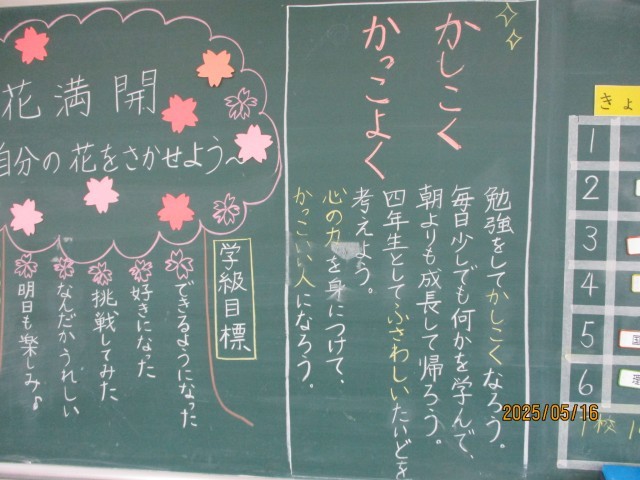 花満開
自分の花をさかせよう～
学級目標
できるようになった
好きになった
挑戦してみた
なんだかうれしい
明日も楽しみ♪
かしこく
かっこよく
勉強をしてかしこくなろう。
毎日少しでも何かを学んで、
朝よりも成長して帰ろう。
四年生としてふさわしいたいどを
考えよう。
心の力を身につけて、
かっこいい人になろう。
きょ
1
2
3
4
5
国
6
理
2025/05/16